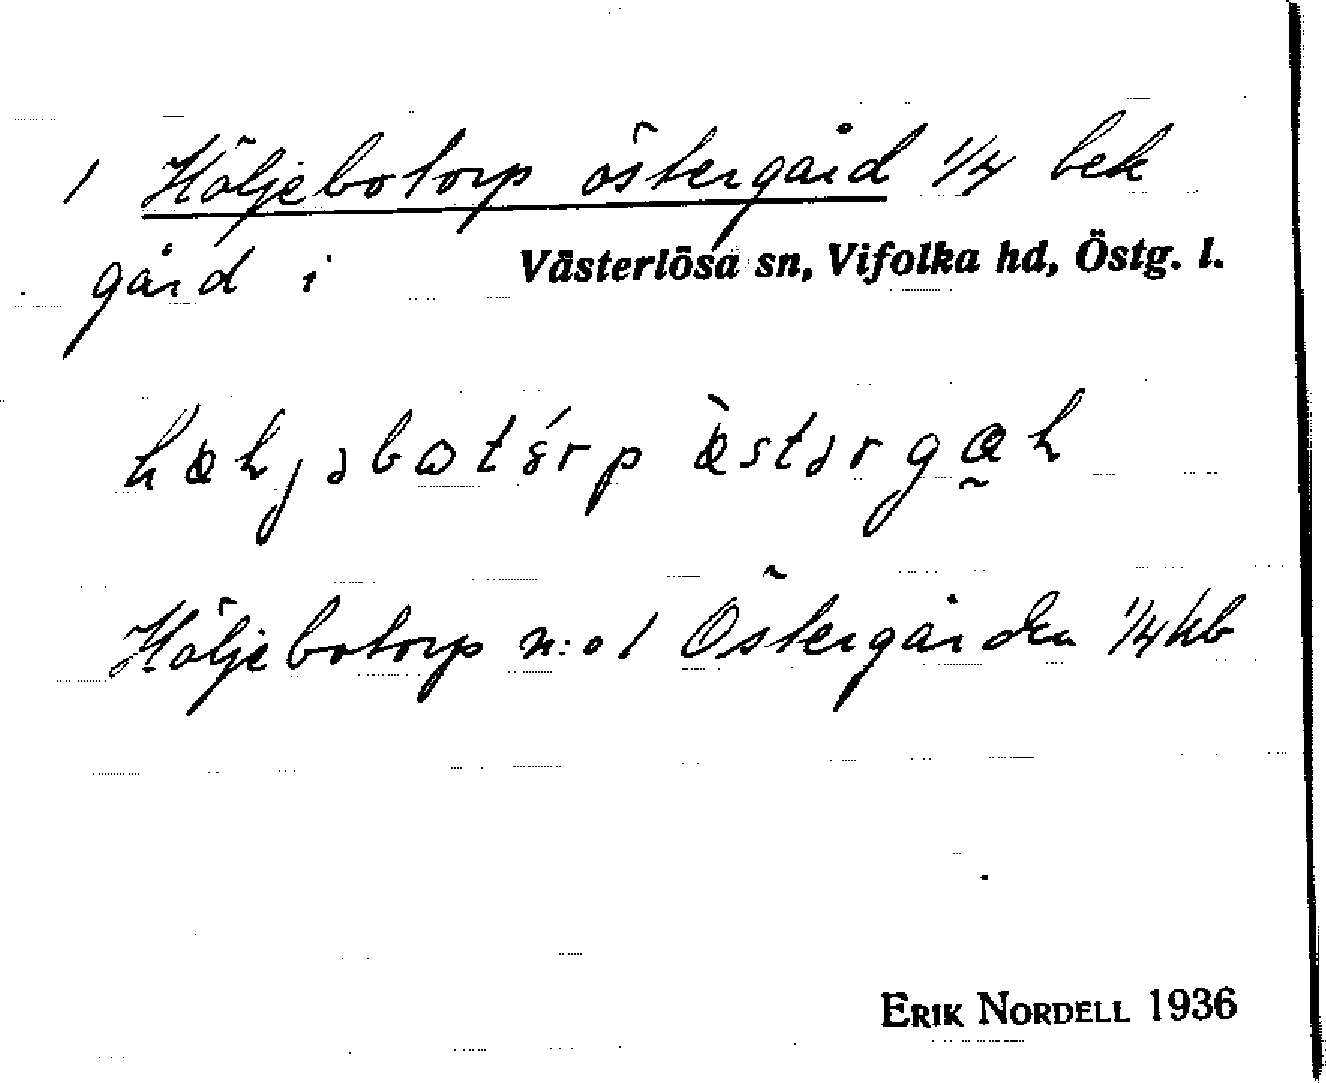 1 Höljebotorp östergård 1/4 bek
gård i Västerlösa sn, Vifolka hd, Östg. l.
Höljebotorp n:o 1 Östergården 1/4 kb
ERIK NORDELL 1936